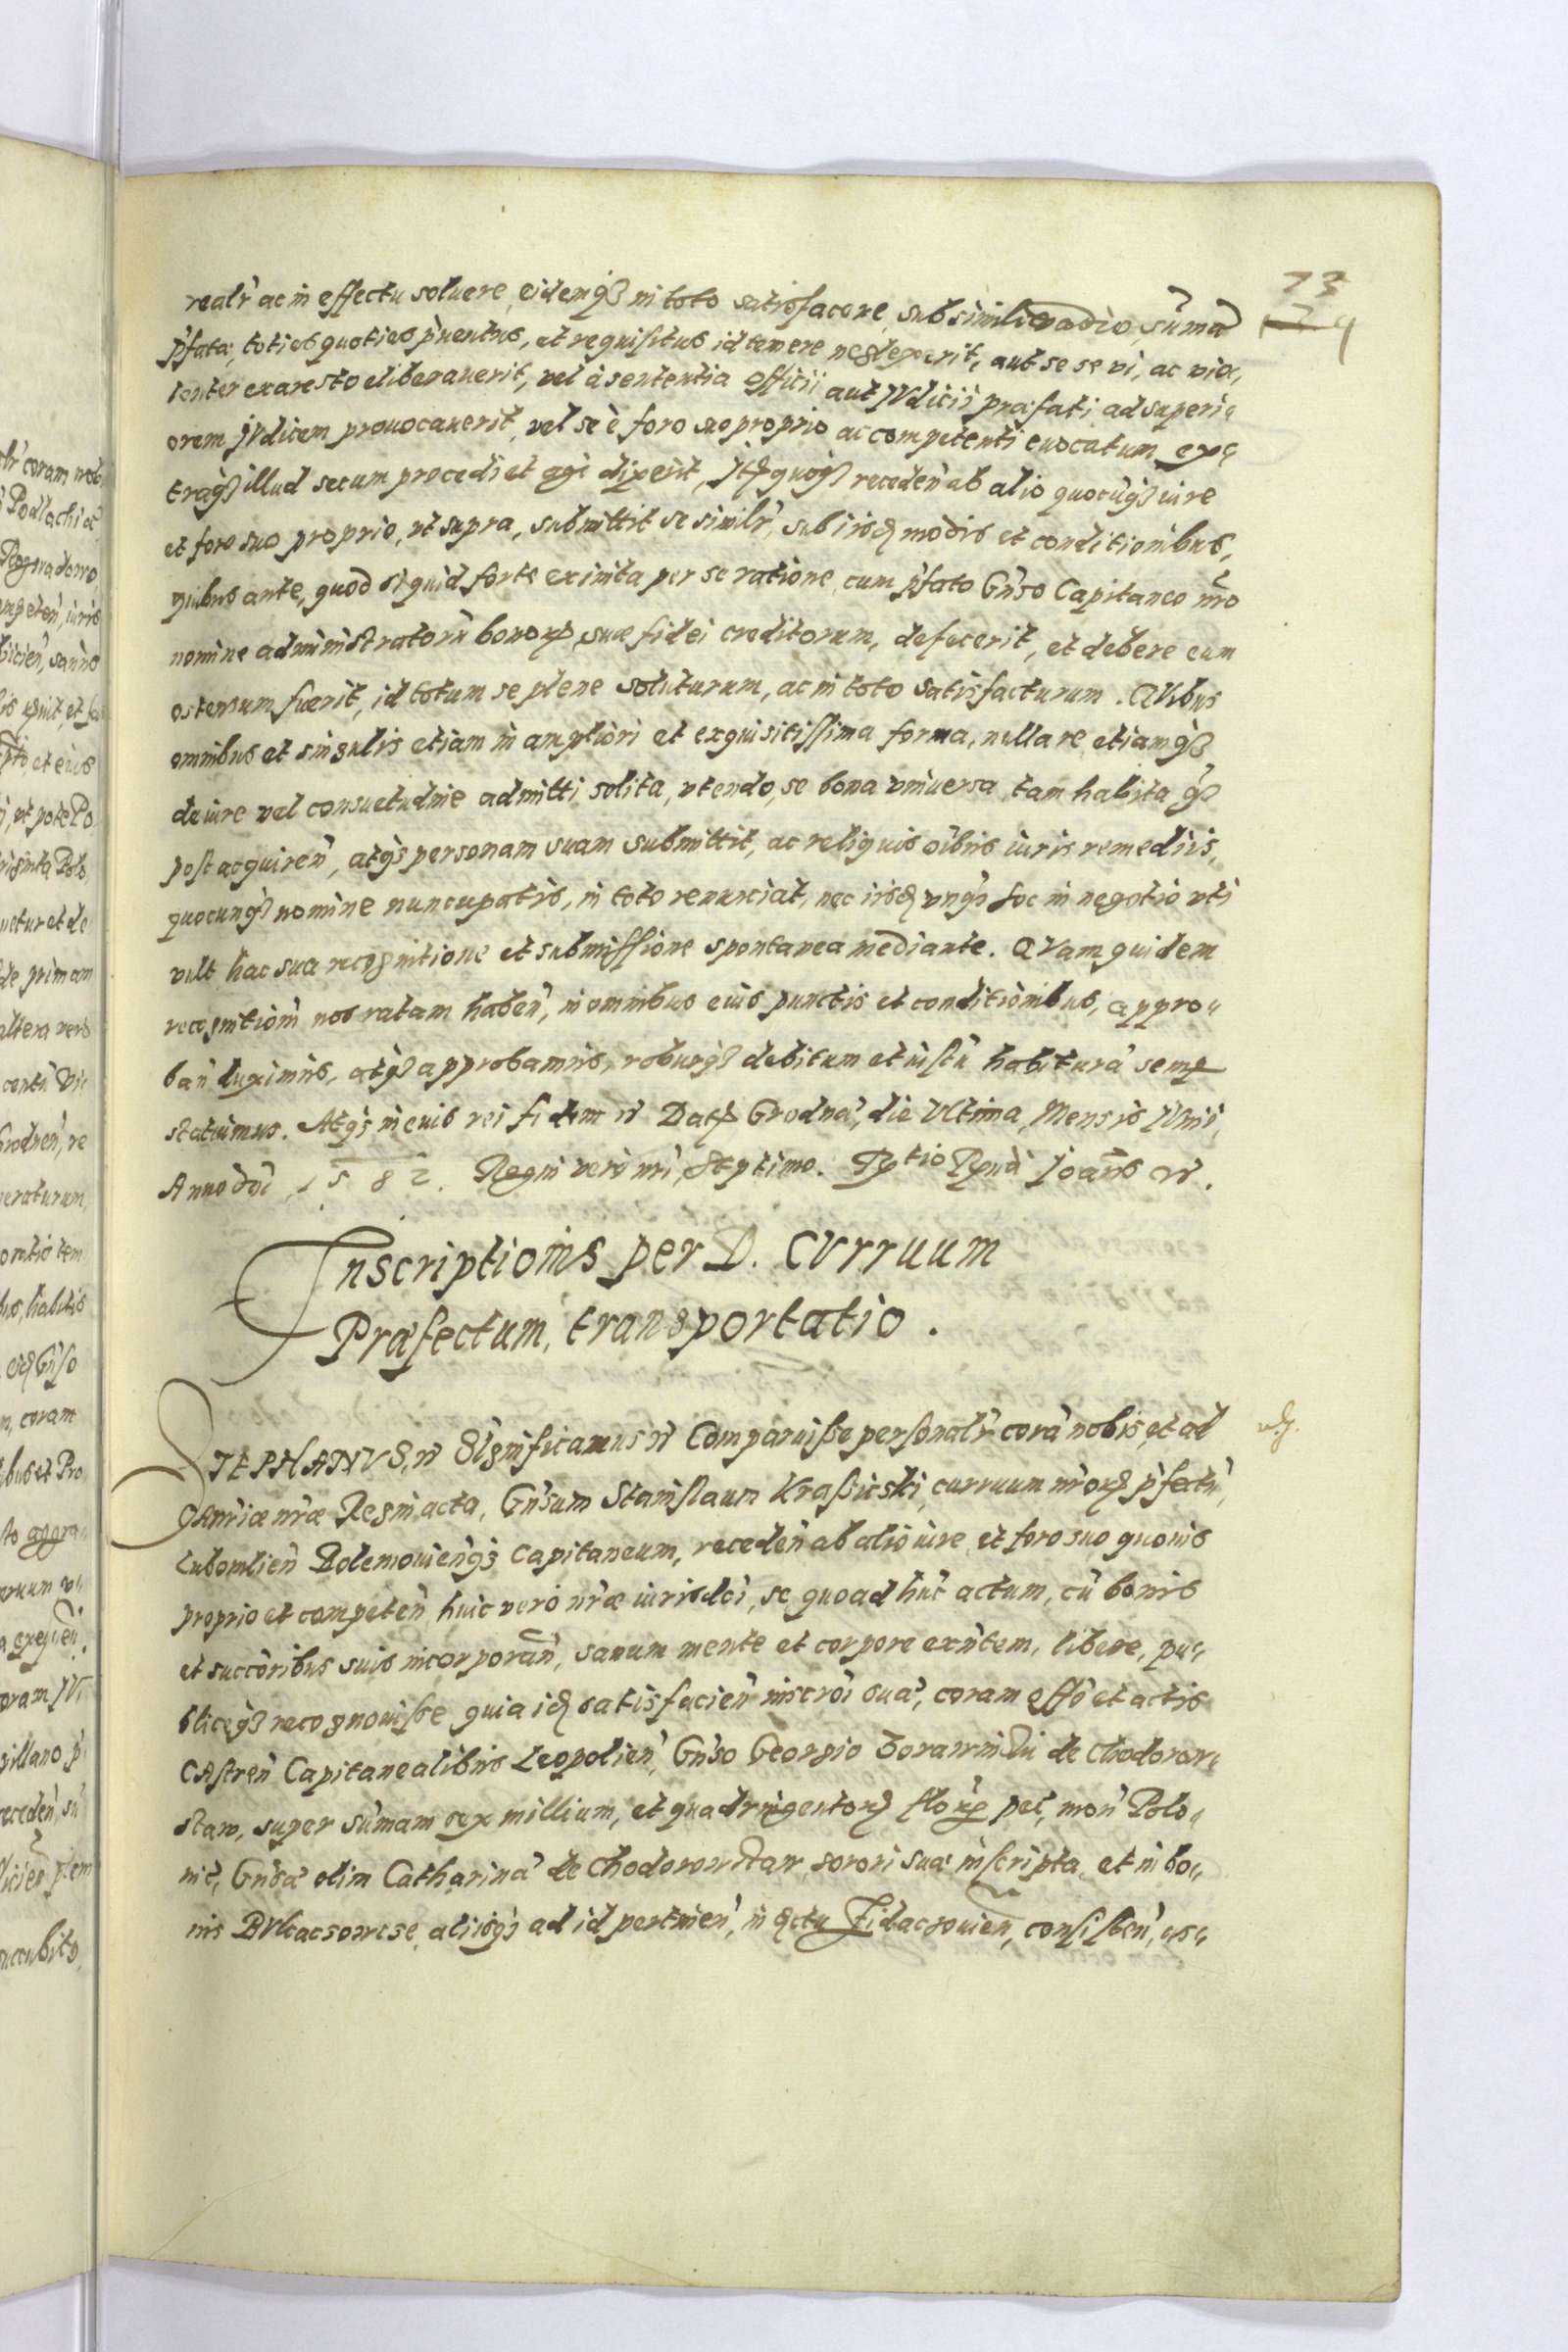 73
realr̀ ac in effectu soluere, eidemq̃ in toto satisfacere, sub simili vadio, sum̃a
p̃fata, toties quoties p̀uentus, et requisitus id temere neglexerit, aut se se vi, ac vio,
lenter ex aresto eliberauerit, vel à sententia officii aut IVdicii præfati ad superi,
orem IVdicem prouocauerit, vel se è foro suo proprio ac competenti euocatum, ex,
traq̃ illud secum procedi et agi dixerit, quoq̃ receden̄ ab alio quocūq̃ iure
et foro suo proprio, vt supra, submittit se similr̀, sub iisd̃ modis et conditionibus,
quibus ante, quod si quid forte exinita per se ratione, cum p̃fato Gn̄so Capitaneo nr̄o
nomine administratorū bonoꝝ, suæ fidei creditorum, defecerit, et debere eum
ostensum fuerit, id totum se plene soluturum, ac in toto satisfacturum. QVibus
omnibus et singulis etiam in ampliori et exquisitissima forma, nulla re etiamq̃
de iure vel consuetudine admitti solita, vtendo, se bona vniuersa tam habita q̃
post acquiren̄, atq̃ personam suam submittit, ac reliquis oībus iuris remediis,
quocunq̃ nomine nuncupatis, in toto renunciat, nec iisd̃ vnq̃ hoc in negotio vti
vult hac sua recognitione et submissione spontanea mediante. QVam quidem
recognitiom̄ nos ratam haben̄, in omnibus eius punctis et conditionibus, appro,
ban̄ duximus, atq̃ approbamus, roburq̃ debitum et iustū habiturā semꝑ
statuimus. Atq̃ in euis rei fidem ꝛc̄ Datꝭ Grodnæ, die Vltima, Mensis IVnii,
Anno dn̄i 1582. Regni vero nr̄i, Septimo. Rp̄tio Rp̄ndi Ioan̄is ꝛc̄.
Inscriptionis per D. CVrruum
Præfectum, transportatio.
STEPHANVS, ꝛc̄ SIgnificamus ꝛc̄ Comparuisse personalr̀ corā nobis, et ad
CAn̄riæ nr̄æ Regni acta, Gn̄sum Stanislaum Krasicski, curruum nr̄oꝝ p̃fectū,
Lubomlien̄ Bolemouien̄q̃ Capitaneum, receden̄ ab alio iure et foro suo quouis
proprio et competen̄, huic vero nr̄æ iurisdc̄i, se quoad hūc actum, cū bonis
et succ̄oribus suis incorporan̄, sanum mente et corpore exn̄tem, libere, pu,
bliceq̃ recognouisse quia id̃ satisfacien̄ inscrōi suæ, coram offō et actis
CAstren̄ Capitanealibus Leopolien̄, Gn̄so Georgio de Chodoror,
staw, super sum̄am sex millium, et quadringentoꝝ floꝝ pec̄, mon̄ Polo,
nic̄, Gn̄sæ olim Catharinæ de Chodorowstaw sorori suæ inscripta, et in bo,
nis aliisq̃ ad id pertinen̄, in dc̄tu Zidaczouien̄, consisten̄, as,